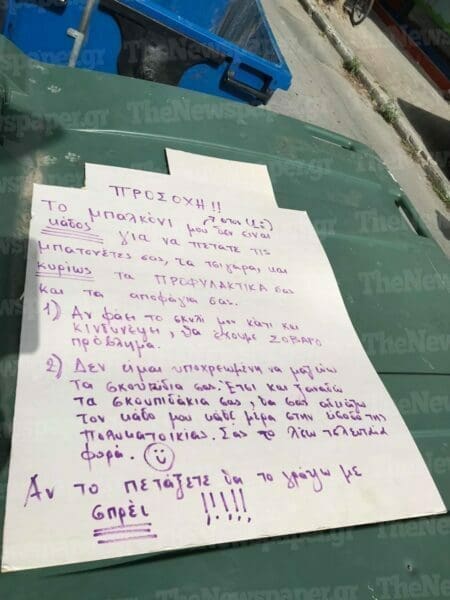 ΠΡΟΣΟΧΗ!!
ΤΟ μπαλκόνι μου δεν είναι
κάδος για να πετάτε τις
μπατονέτες σας, τα τσιγάρα, και
κυρίως τα ΠΡΟΦΥΛΑΚΤΙΚΑ σας
και τα αποφάγια σας.
1) Αν φάει το σκυλί μου κάτι και
κινδυνέψει, θα έχουμε ΣΟΒΑΡΟ
πρόβλημα.
2) Δεν είμαι υποχρεωμένη να μαζεύω
τα σκουπίδια σας. Έτσι και ξαναδώ
τα σκουπιδάκια σας, θα σας αδειάζω
τον κάδο μου κάθε μέρα στην είσοδο της
πολυκατοικίας. Σας το λέω τελευταία
φορά.
Αν το πετάξετε θα το γράψω με
σπρέι !!!!!
TheNewspaper.gr